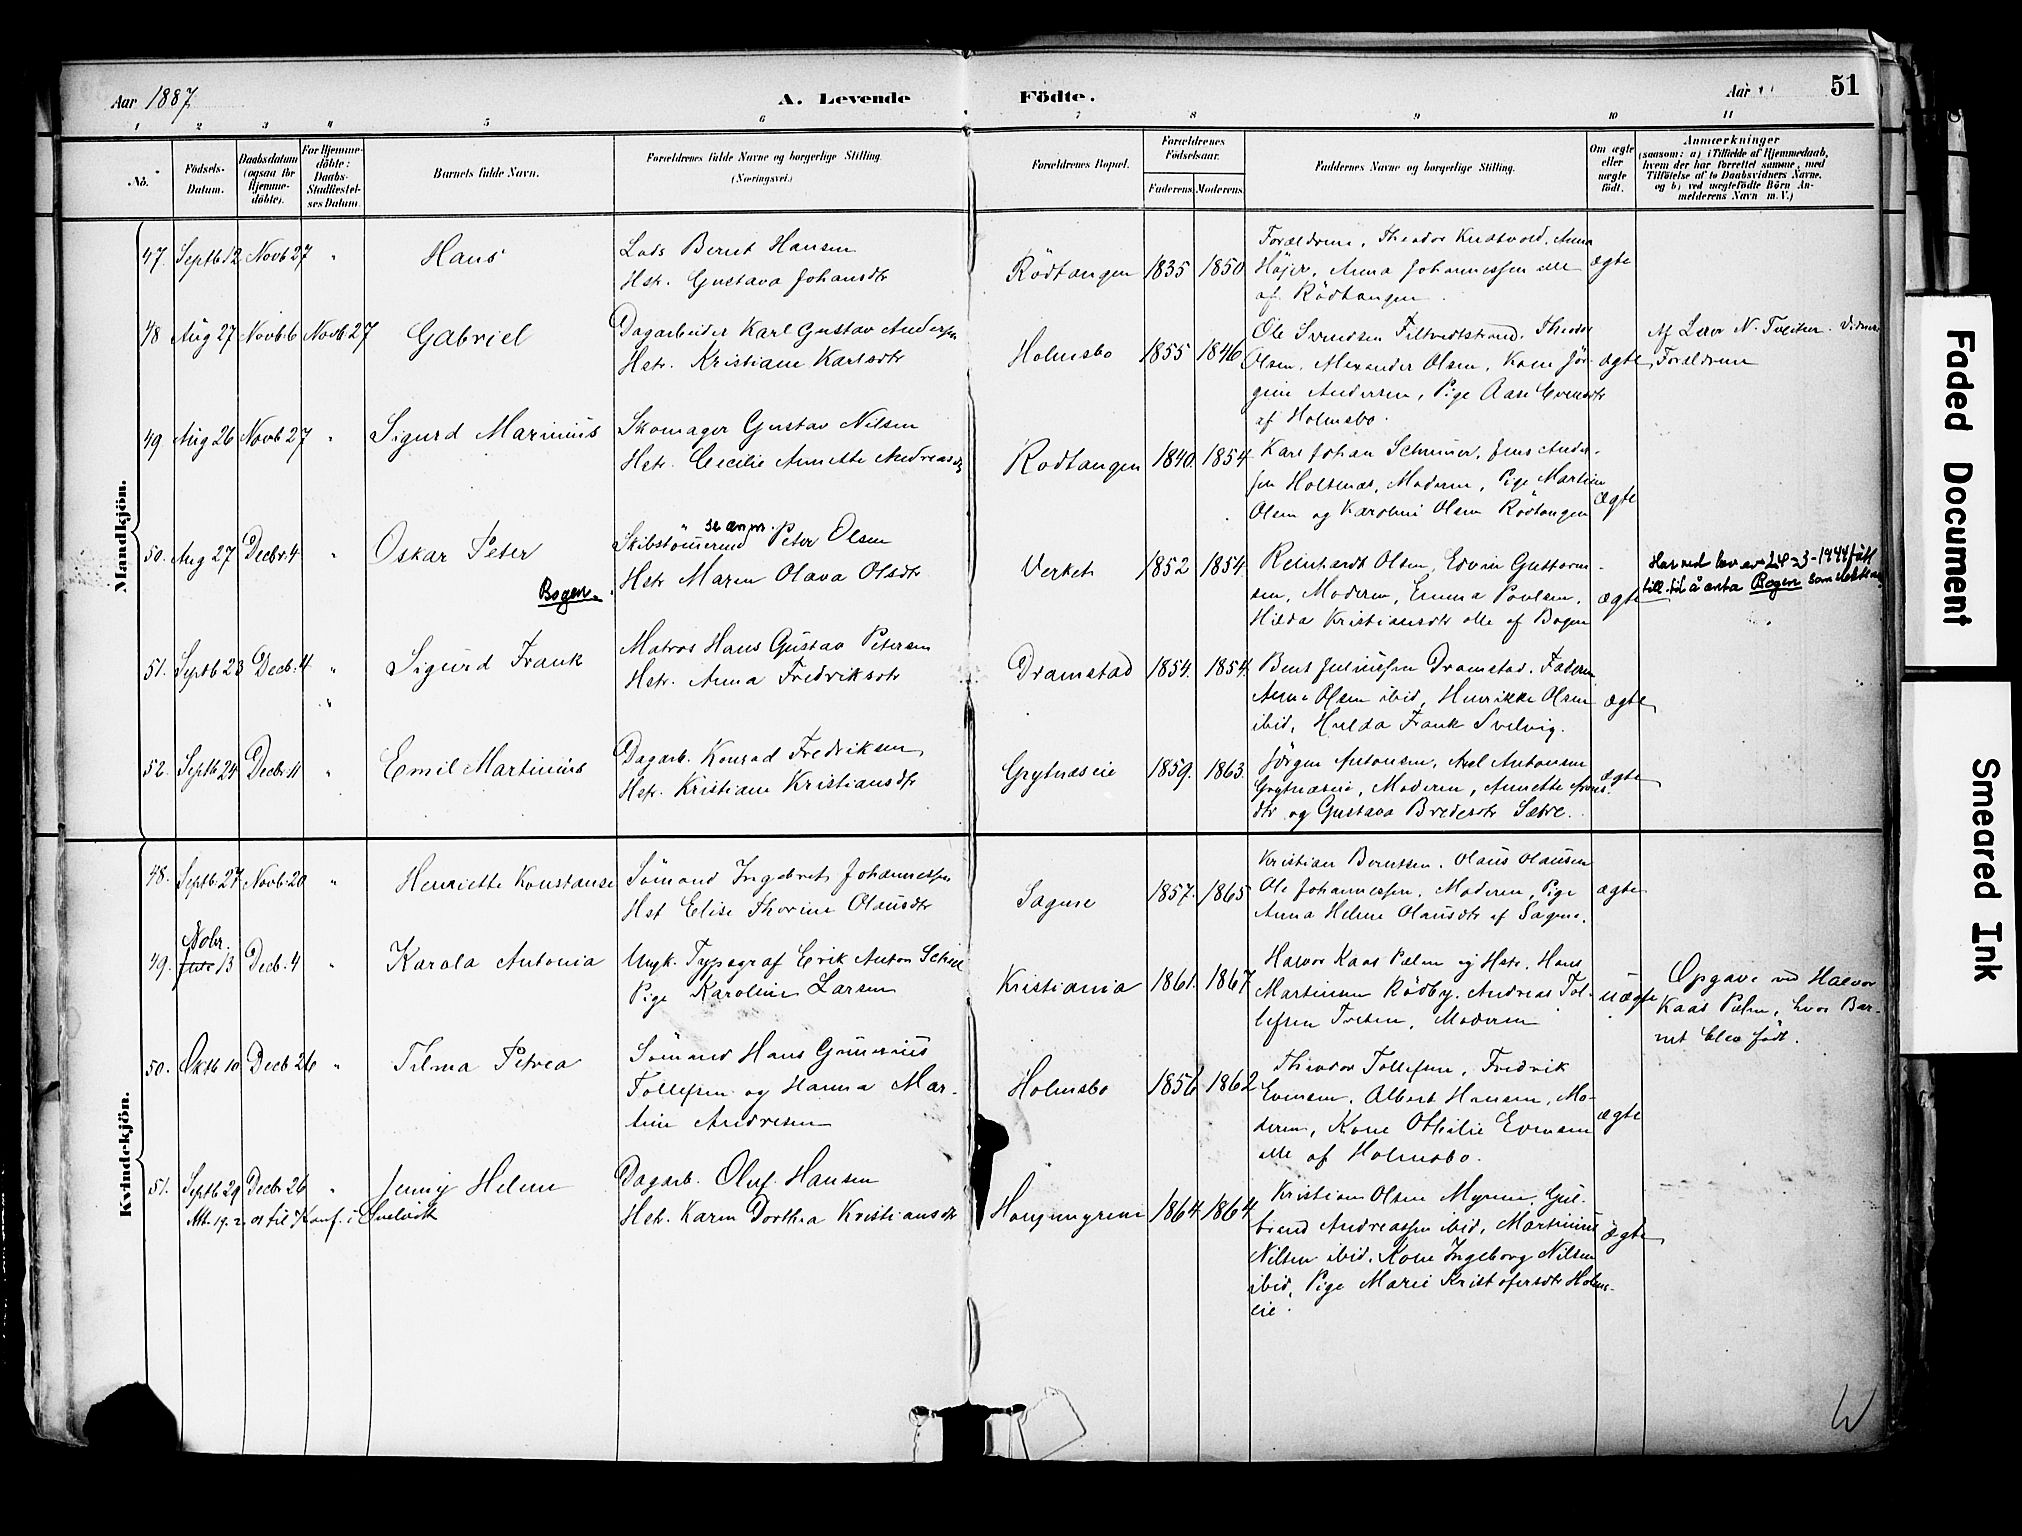 Aar 1887
A. Levende Födte.
Aar 51
1 2 3 4 5 6 7 8 9 10 11
No.
Födsels-Datum.
Daabsdatum (ogsaa for Hjemme-döbte).
For Hjemme-döbte: Daabs-Stadfæstel-ses Datum.
Barnets fulde Navn.
Forældrenes fulde Navne og borgerlige Stilling.
(Næringsvei.)
Forældrenes Bopæl.
Forældrenes Födselsaar.
Faderens Moderens
Faddernes Navne og borgerlige Stilling.
Om ægte eller uægte födt.
Anmærkninger
(saasom: a) i Tilfælde af Hjemmedaab,
hvem der har forrettet samme, med
Tilföielse af to Daabsvidners Navne,
og b) ved uægtefödte Börn An-
melderens Navn m.V.)
Mandkjön.
47. Septb 12 Novb 27 " Hans
Lods Bernt Hansen
Hstr. Gustava Johansdtr
Rödtangen 1835 1850
Forældrene, Theodor Knatvold, Anna
Højer, Anna Johannessen alle
af Rödtangen.
ægte
48 Aug 27 Novb. 6 Novb. 27 Gabriel
Dagarbeider Karl Gustav Andersen
Hstr. Kristiane Karlsdtr
Holmsbo 1855 1846
Ole Svendsen Filtvedtstrand, Theodor
Olsen, Alexander Olsen, Kone Jör-
gine Andersen, Pige Aase Evensdtr
af Holmsbo.
ægte
Af Lærer N. Tveiten. Vidner
Forældrene
49 Aug 26 Novb 27 " Sigurd Marinius
Skomager Gustav Nilsen
Hstr. Cecilie Annette Andreasdtr
Rödtangen 1840. 1854
Karl Johan Schriner, Jens Ander-
sen Holtnæs, Moderen, Pige Martine
Olsen og Karoline Olsen Rödtangen
ægte
50. Aug 27 Decbr. 4 " Oskar Peter
Bogen.
se anm.
Skibstömmermd Peter Olsen
Hstr Maren Olava Olsdtr
Verket 1852 1854
Reinhardt Olsen, Edvin Guttorm-
sen, Moderen, Emma Povlsen,
Hilda Kristiansdtr alle af Bogen
ægte
Har ved bev av 24-3-1944 fått
till. til å anta Bogen som slektsn.
51. Septb 23 Decb. 4 " Sigurd Frank
Matros Hans Gustav Petersen
Hstr. Anna Fredriksdtr
Dramstad 1854. 1854.
Bent Juliussen Dramstad, Faderen
Anne Olsen ibid, Henrikke Olsen
ibid, Hulda Frank Svelvig.
ægte
52. Septb 24 Decbr. 11 " Emil Martinius
Dagarb. Konrad Fredriksen
Hstr. Kristiane Kristiansdtr
Grytnæseie 1859. 1863.
Jörgen Antonsen, Axel Antonsen
Grytnæseie, Moderen, Annette
dtr og Gustava Bredesdtr Sætre.
ægte
Kvindekjön.
48. Septb. 27 Novb. 20 " Henriette Konstanse
Sömand Ingebret Johannessen
Hst Elise Thorine Olausdtr
Sagene 1857. 1865
Kristian Berntsen, Olaus Olausen
Ole Johannessen, Moderen, Pige
Anna Helene Olausdtr af Sagene.
ægte
Nobr.
49. 13 Decb. 4 " Karola Antonia
Ungk. Typograf Erik Anton
Pige Karoline Larsen
Kristiania 1861. 1867
Halvor Kaas Palm og Hstr, Hans
Martinsen Rödby, Andreas Tol-
lefsen Tveten, Moderen
uægte
Opgave ved Halvor
Kaas Palm, hvor Bar-
net blev födt.
50. Oktb 10 Decb 26 " Tilma Petrea
Sömand Hans Gunerius
Tollefsen og Hanna Mar-
tine Andresen
Holmsbo 1856 1862
Theodor Tollefsen, Fredrik
Evensen, Albert Hansen, Mo-
deren, Kone Othilie Evensen
alle af Holmsbo.
ægte
51. Septb 29 Decbr 26 " Jenny Helene
Att. 19.2.01 til Konf. i Svelvik
Dagarb. Oluf Hansen
Hstr. Karen Dorthea Kristiansdtr
Haugmyrene 1864 1864
Kristian Olsen Myrene, Gul-
brand Andreassen ibid, Martinius
Nilsen ibid, Kone Ingeborg Nilsen
ibid, Pige Marie Kristofersdtr Holm-
eie.
ægte
Faded Document
Smeared Ink